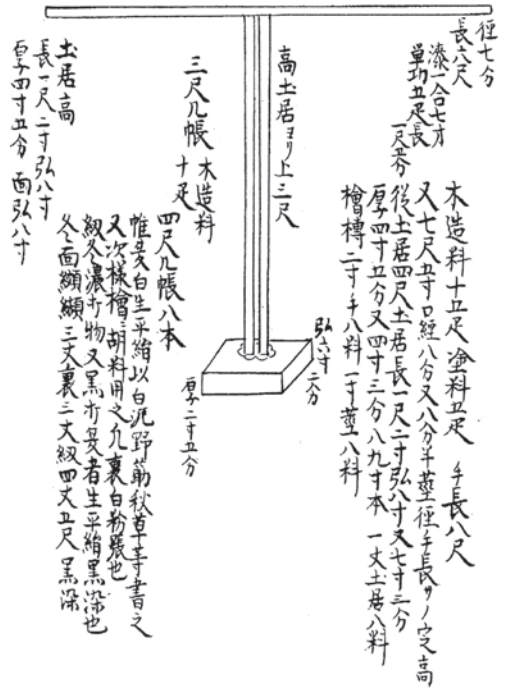 徑七分
長六尺
漆一合七才
單功五疋長
一尺五分
木造料十五疋 塗料五疋 手長八尺
又七尺五寸口經八分又八分半莖徑手長サノ定高
從土居四尺土居長一尺二寸弘八寸又七寸三分
厚四寸五分又四寸三分八九寸本 一丈土居八料
檜榑二寸手八料一寸莖八料
高土居ヨリ上三尺
弘六寸
二分
厚二寸五分
三尺几帳 木造料
十疋
四尺几帳八本
帷夏白生平絹以白泥野筋秋草等書之
又次様檜胡料用之九裏白粉張也
紐冬濃打物又黒打夏者生平絹黒染也
冬面纐纈三丈裏三丈紐四丈五尺黒染
土居高
長一尺二寸弘八寸
厚四寸五分 面弘八寸